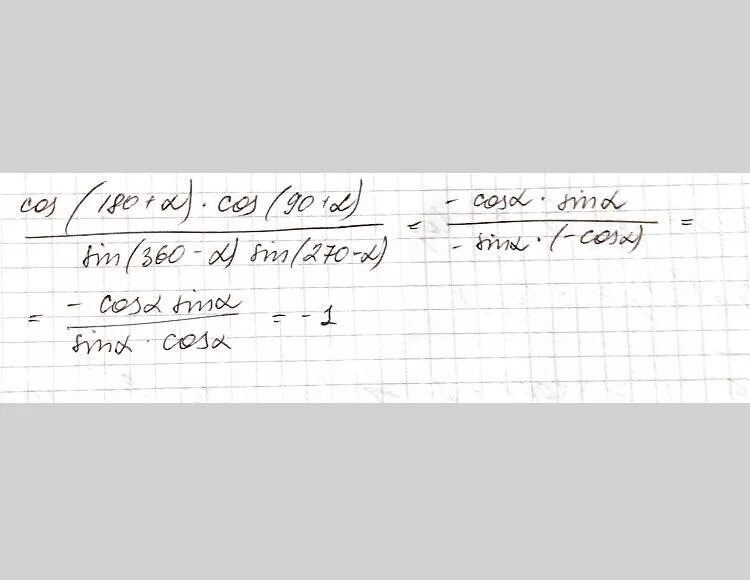 cos (180+α) · cos (90+α) / sin(360-α) sin(270-α) = - cosα · sinα / - sinα · (-cosα) =
= - cosα sinα / sinα · cosα = - 1